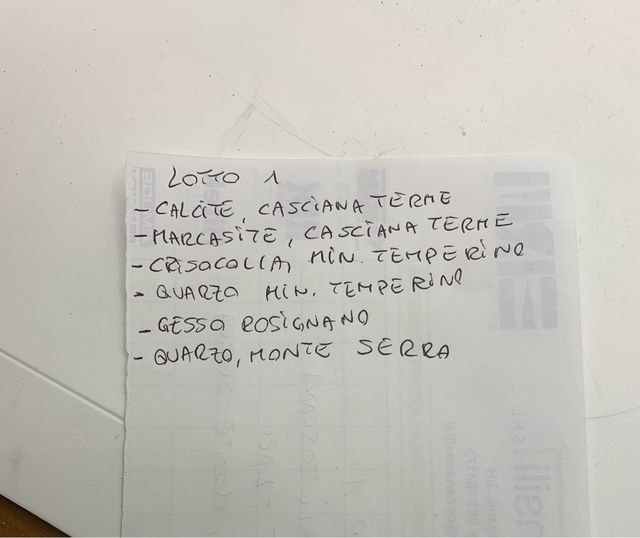 LOTTO 1
- CALCITE, CASCIANA TERME
- MARCASITE, CASCIANA TERME
- CRISOCOLLA, MIN. TEMPERINO
- QUARZO MIN. TEMPERINO
- GESSO ROSIGNANO
- QUARZO, MONTE SERRA